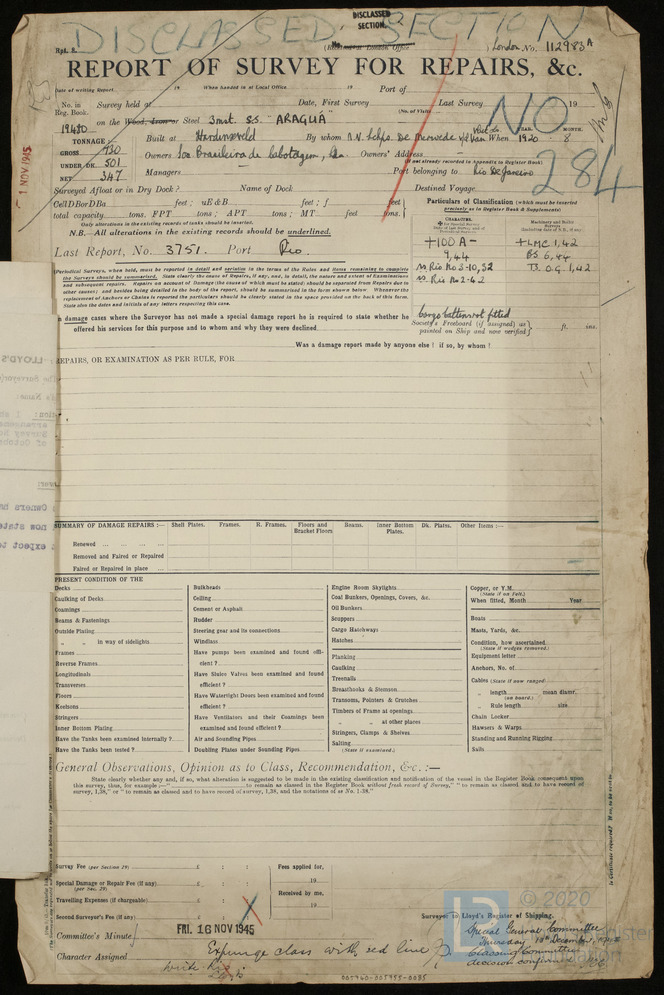 DISCLASSED SECTION
DISCLASSED
SECTION.
Rpt. 8.
London No. 112983A
REPORT OF SURVEY FOR REPAIRS, &c.
Date of writing Report 19 When handed in at Local Office 19 Port of
No. in Survey held at Date, First Survey Last Survey 19
Reg. Book. (No. of Visits)
NO
19480 on the Wood, Iron or Steel 3mst. S.S. "ARAGUA"
284
TONNAGE Built at Hardinxveld By whom When 1920 - 8
YEAR. MONTH.
GROSS 930
UNDER DK. 501 Owners Soc. Brasileira de Cabotagem, Owners' Address
(if not already recorded in Appendix to Register Book)
NET 347 Managers Port belonging to Rio De Janeiro
1 NOV 1945
Surveyed Afloat or in Dry Dock? Name of Dock Destined Voyage
Cell D Bor D Ba feet; uE & B feet; f feet
total capacity tons. FPT tons; APT tons; MT feet tons.
Only alterations in the existing records of tanks should be inserted.
N.B.—All alterations in the existing records should be underlined.
Particulars of Classification (which must be inserted
precisely as in Register Book & Supplements)
CHARACTER.
Machinery and Boiler
Surveys
+100A- +LMC 1,42
9,44 BS 6,44
Rio No 3-10,32 TS. O.G. 1,42
Rio No 2-42
Last Report, No. 3751. Port Rio.
Periodical Surveys, when held, must be reported in detail and seriatim in the terms of the Rules and items remaining to complete
the Survey should be summarised. State clearly the cause of Repairs, if any, and, in detail, the nature and extent of Examinations
and subsequent repairs. Repairs on account of Damage (the cause of which must be stated) should be separated from Repairs due to
other causes; and besides being detailed in the body of the report, should be summarised in the form shewn below. Whenever the
replacement of Anchors or Chains is reported the particulars should be clearly stated in the space provided on the back of this form.
State also the dates and initials of any letters respecting this case.
cargo battens not fitted
In damage cases where the Surveyor has not made a special damage report he is required to state whether he
offered his services for this purpose and to whom and why they were declined
Society's Freeboard (if assigned) as
painted on Ship and now verified ft. ins.
Was a damage report made by anyone else? if so, by whom?
REPAIRS, OR EXAMINATION AS PER RULE, FOR
SUMMARY OF DAMAGE REPAIRS:— Shell Plates. Frames. R. Frames. Floors and Bracket Floors Beams. Inner Bottom Plates. Dk. Plates. Other Items:—
Renewed
Removed and Faired or Repaired
Faired or Repaired in place
PRESENT CONDITION OF THE
Decks
Caulking of Decks
Coamings
Beams & Fastenings
Outside Plating
" " in way of sidelights
Frames
Reverse Frames
Longitudinals
Transverses
Floors
Keelsons
Stringers
Inner Bottom Plating
Have the Tanks been examined internally?
Have the Tanks been tested?
Bulkheads
Ceiling
Cement or Asphalt
Rudder
Steering gear and its connections
Windlass
Have pumps been examined and found effi-
cient?
Have Sluice Valves been examined and found
efficient?
Have Watertight Doors been examined and found
efficient?
Have Ventilators and their Coamings been
examined and found efficient?
Air and Sounding Pipes
Doubling Plates under Sounding Pipes
Engine Room Skylights
Coal Bunkers, Openings, Covers, &c.
Oil Bunkers
Scuppers
Cargo Hatchways
Hatches
Planking
Caulking
Treenails
Breasthooks & Stemson
Transoms, Pointers & Crutches
Timbers of Frame at openings
" " at other places
Stringers, Clamps & Shelves
Salting
(State if examined.)
Copper, or Y.M.
(State if on Felt.)
When fitted, Month Year
Boats
Masts, Yards, &c.
Condition, how ascertained
(State if wedges removed.)
Equipment letter
Anchors, No. of
Cables (State if now ranged)
" length mean diamr.
(on board.)
" Rule length size
Chain Locker
Hawsers & Warps
Standing and Running Rigging
Sails
General Observations, Opinion as to Class, Recommendation, &c.:—
State clearly whether any, and if so, what alteration is suggested to be made in the existing classification and notification of the vessel in the Register Book consequent upon
this survey, thus, for example:—" to remain as classed in the Register Book without fresh record of Survey," "to remain as classed and to have record of
survey, 1,38," or "to remain as classed and to have record of survey, 1,38, and the notations of
Survey Fee (per Section 29) £ : : Fees applied for,
19
Special Damage or Repair Fee (if any) £ : :
(per Sec. 29)
Received by me,
Travelling Expenses (if chargeable) £ : :
19
Second Surveyor's Fee (if any) £ : :
Surveyor to Lloyd's Register of Shipping.
Committee's Minute FRI. 16 NOV 1945
Character Assigned Expunge class with red line
write Rio
Special General Committee
Thursday 13th December,
Classing Committee's
decision confirmed
000940-000955-0035
© 2020